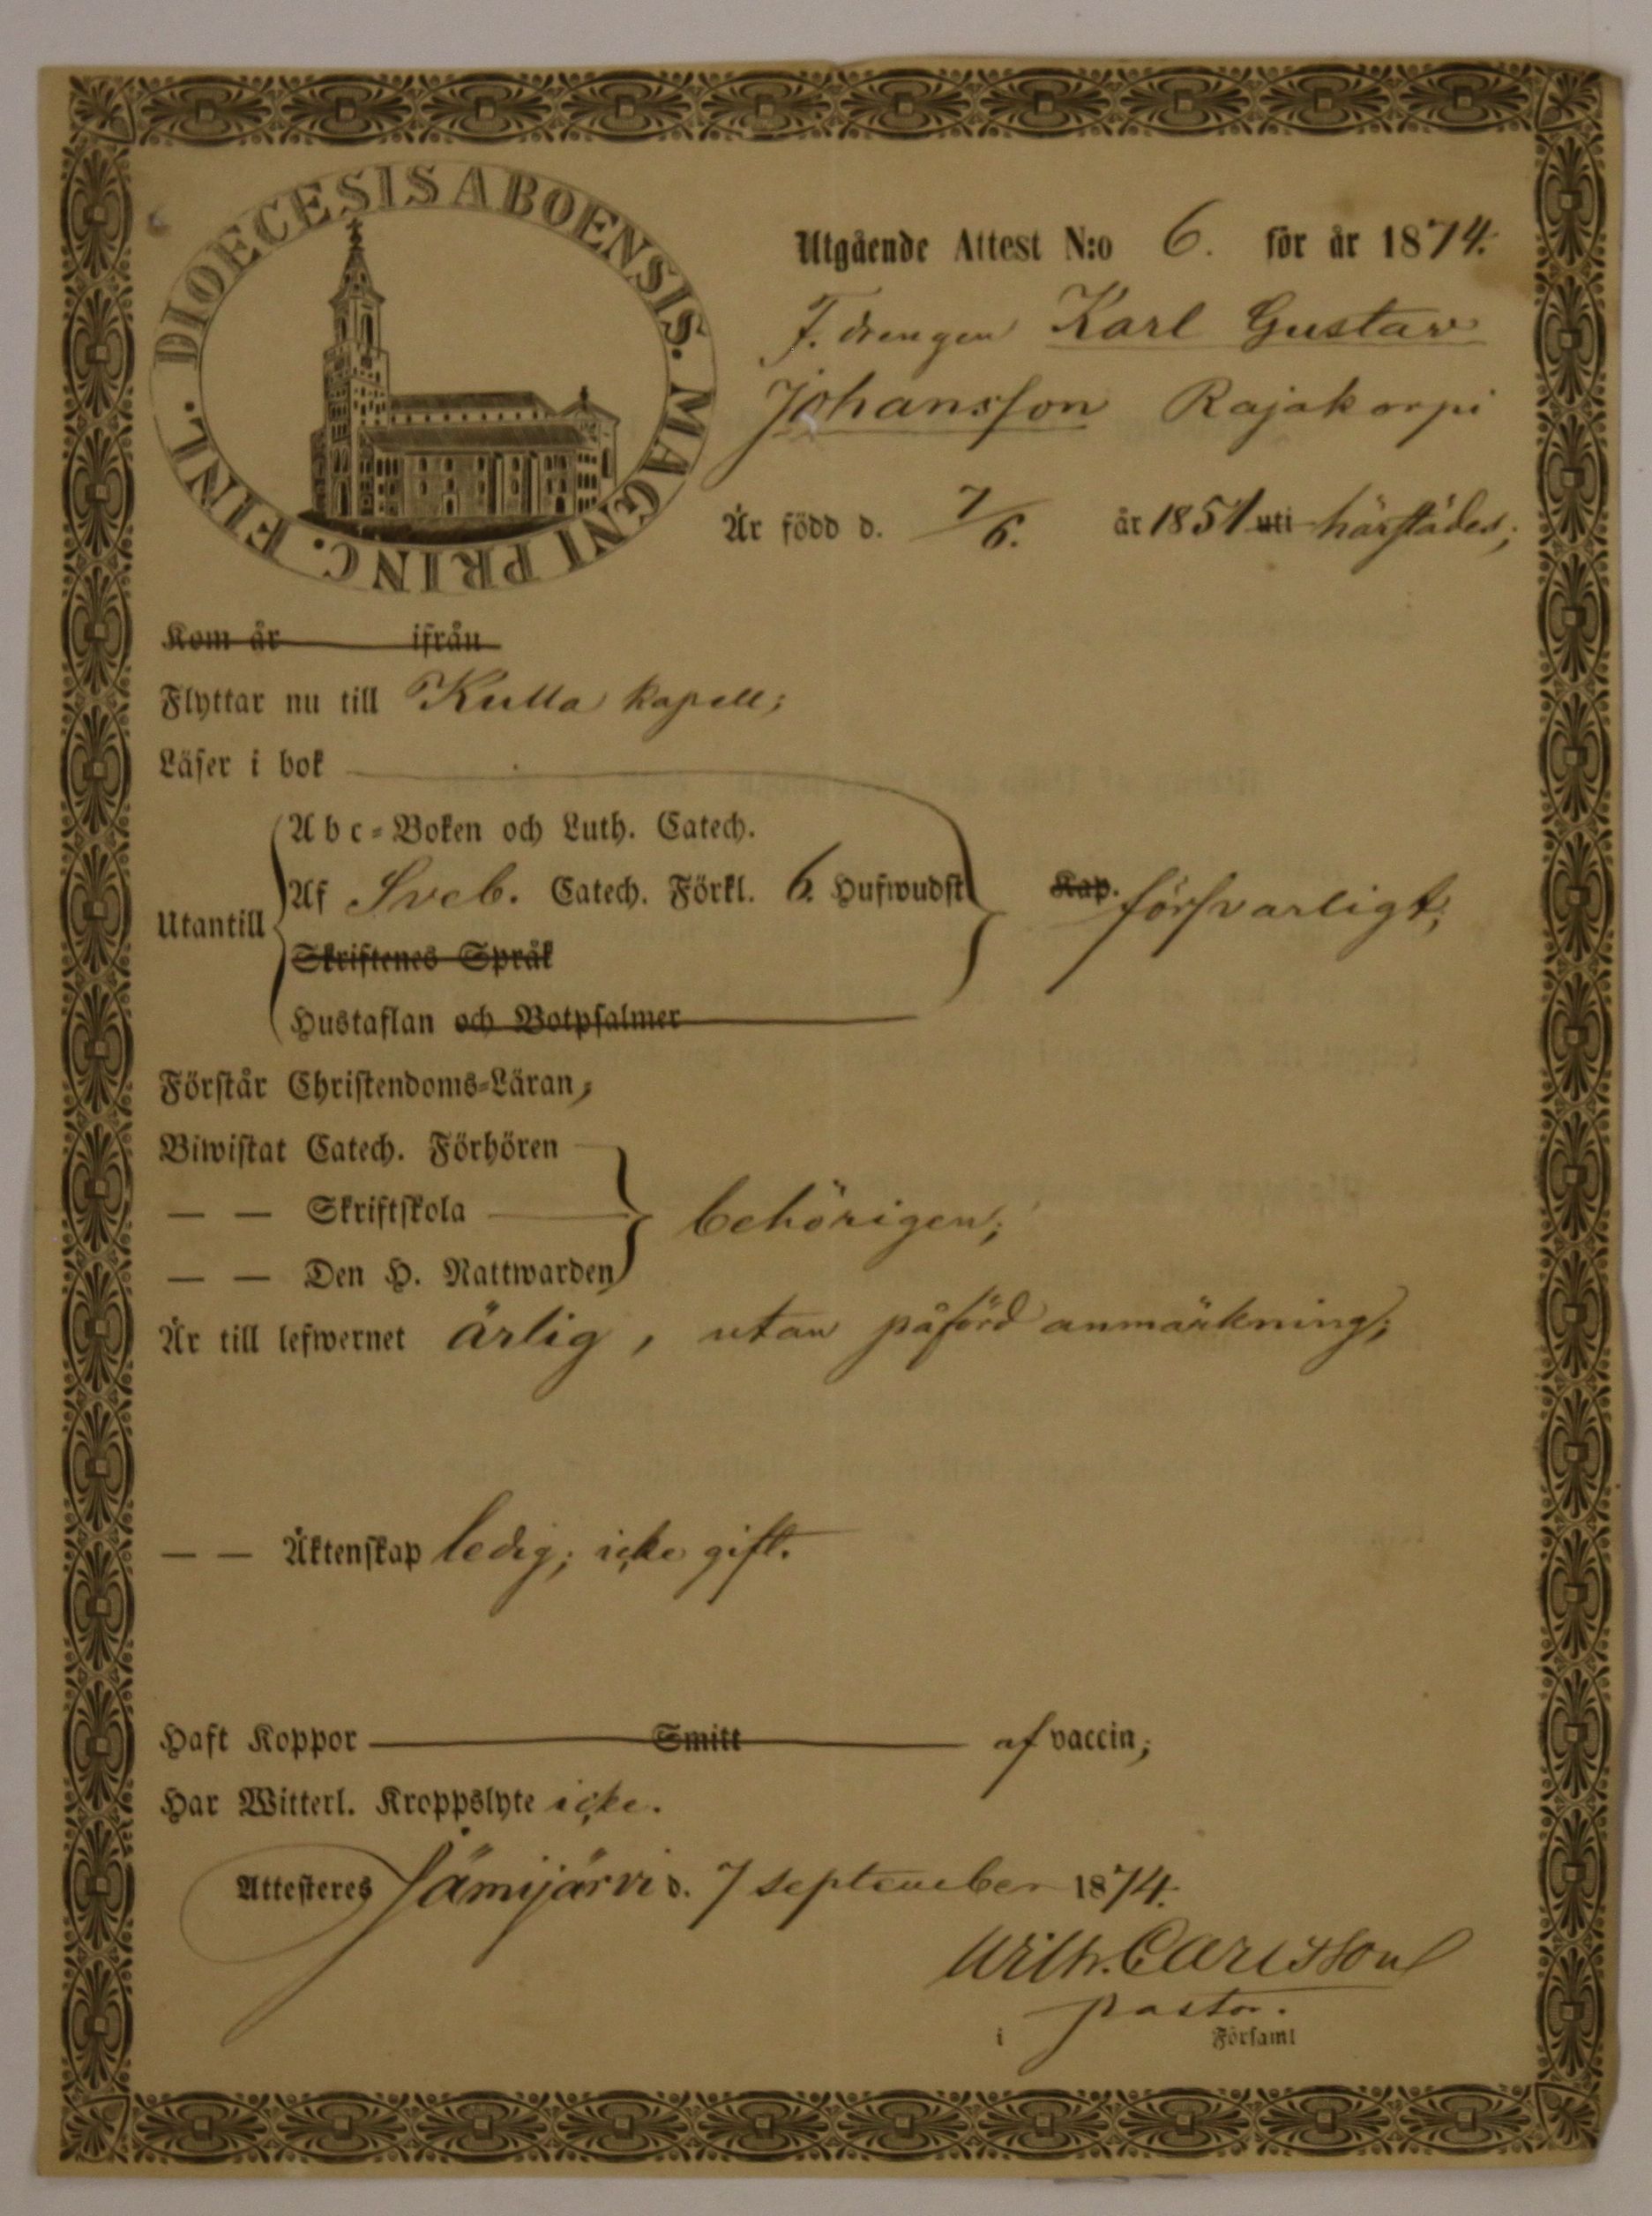 DIOECESIS ABOENSIS. MAGNI PRINC. FINL.
Utgående Attest N:o 6. för år 1874.
F. drengen Karl Gustav
Johansson Rajakorpi
Är född d. 7/6. år 1851 uti härstädes;
Kom år ifrån
Flyttar nu till Kulla kapell;
Läser i bok
Abc-Boken och Luth. Catech.
Utantill Af Sveb. Catech. Förkl. 6. Hufwudst Kap. försvarligt;
Skriftenes Språk
Hustaflan och Botpsalmer
Förstår Christendoms-Läran,
Biwistat Catech. Förhören
— — Skriftskola behörigen;
— — Den H. Nattwarden
Är till lefwernet ärlig, utan påförd anmärkning;
— — Äktenskap ledig; icke gift.
Haft Koppor Smitt af vaccin;
Har Witterl. Kroppslyte icke.
Attesteres Jämijärvi d. 7 september 1874.
Wilh. Carlsson
pastor.
i Församl